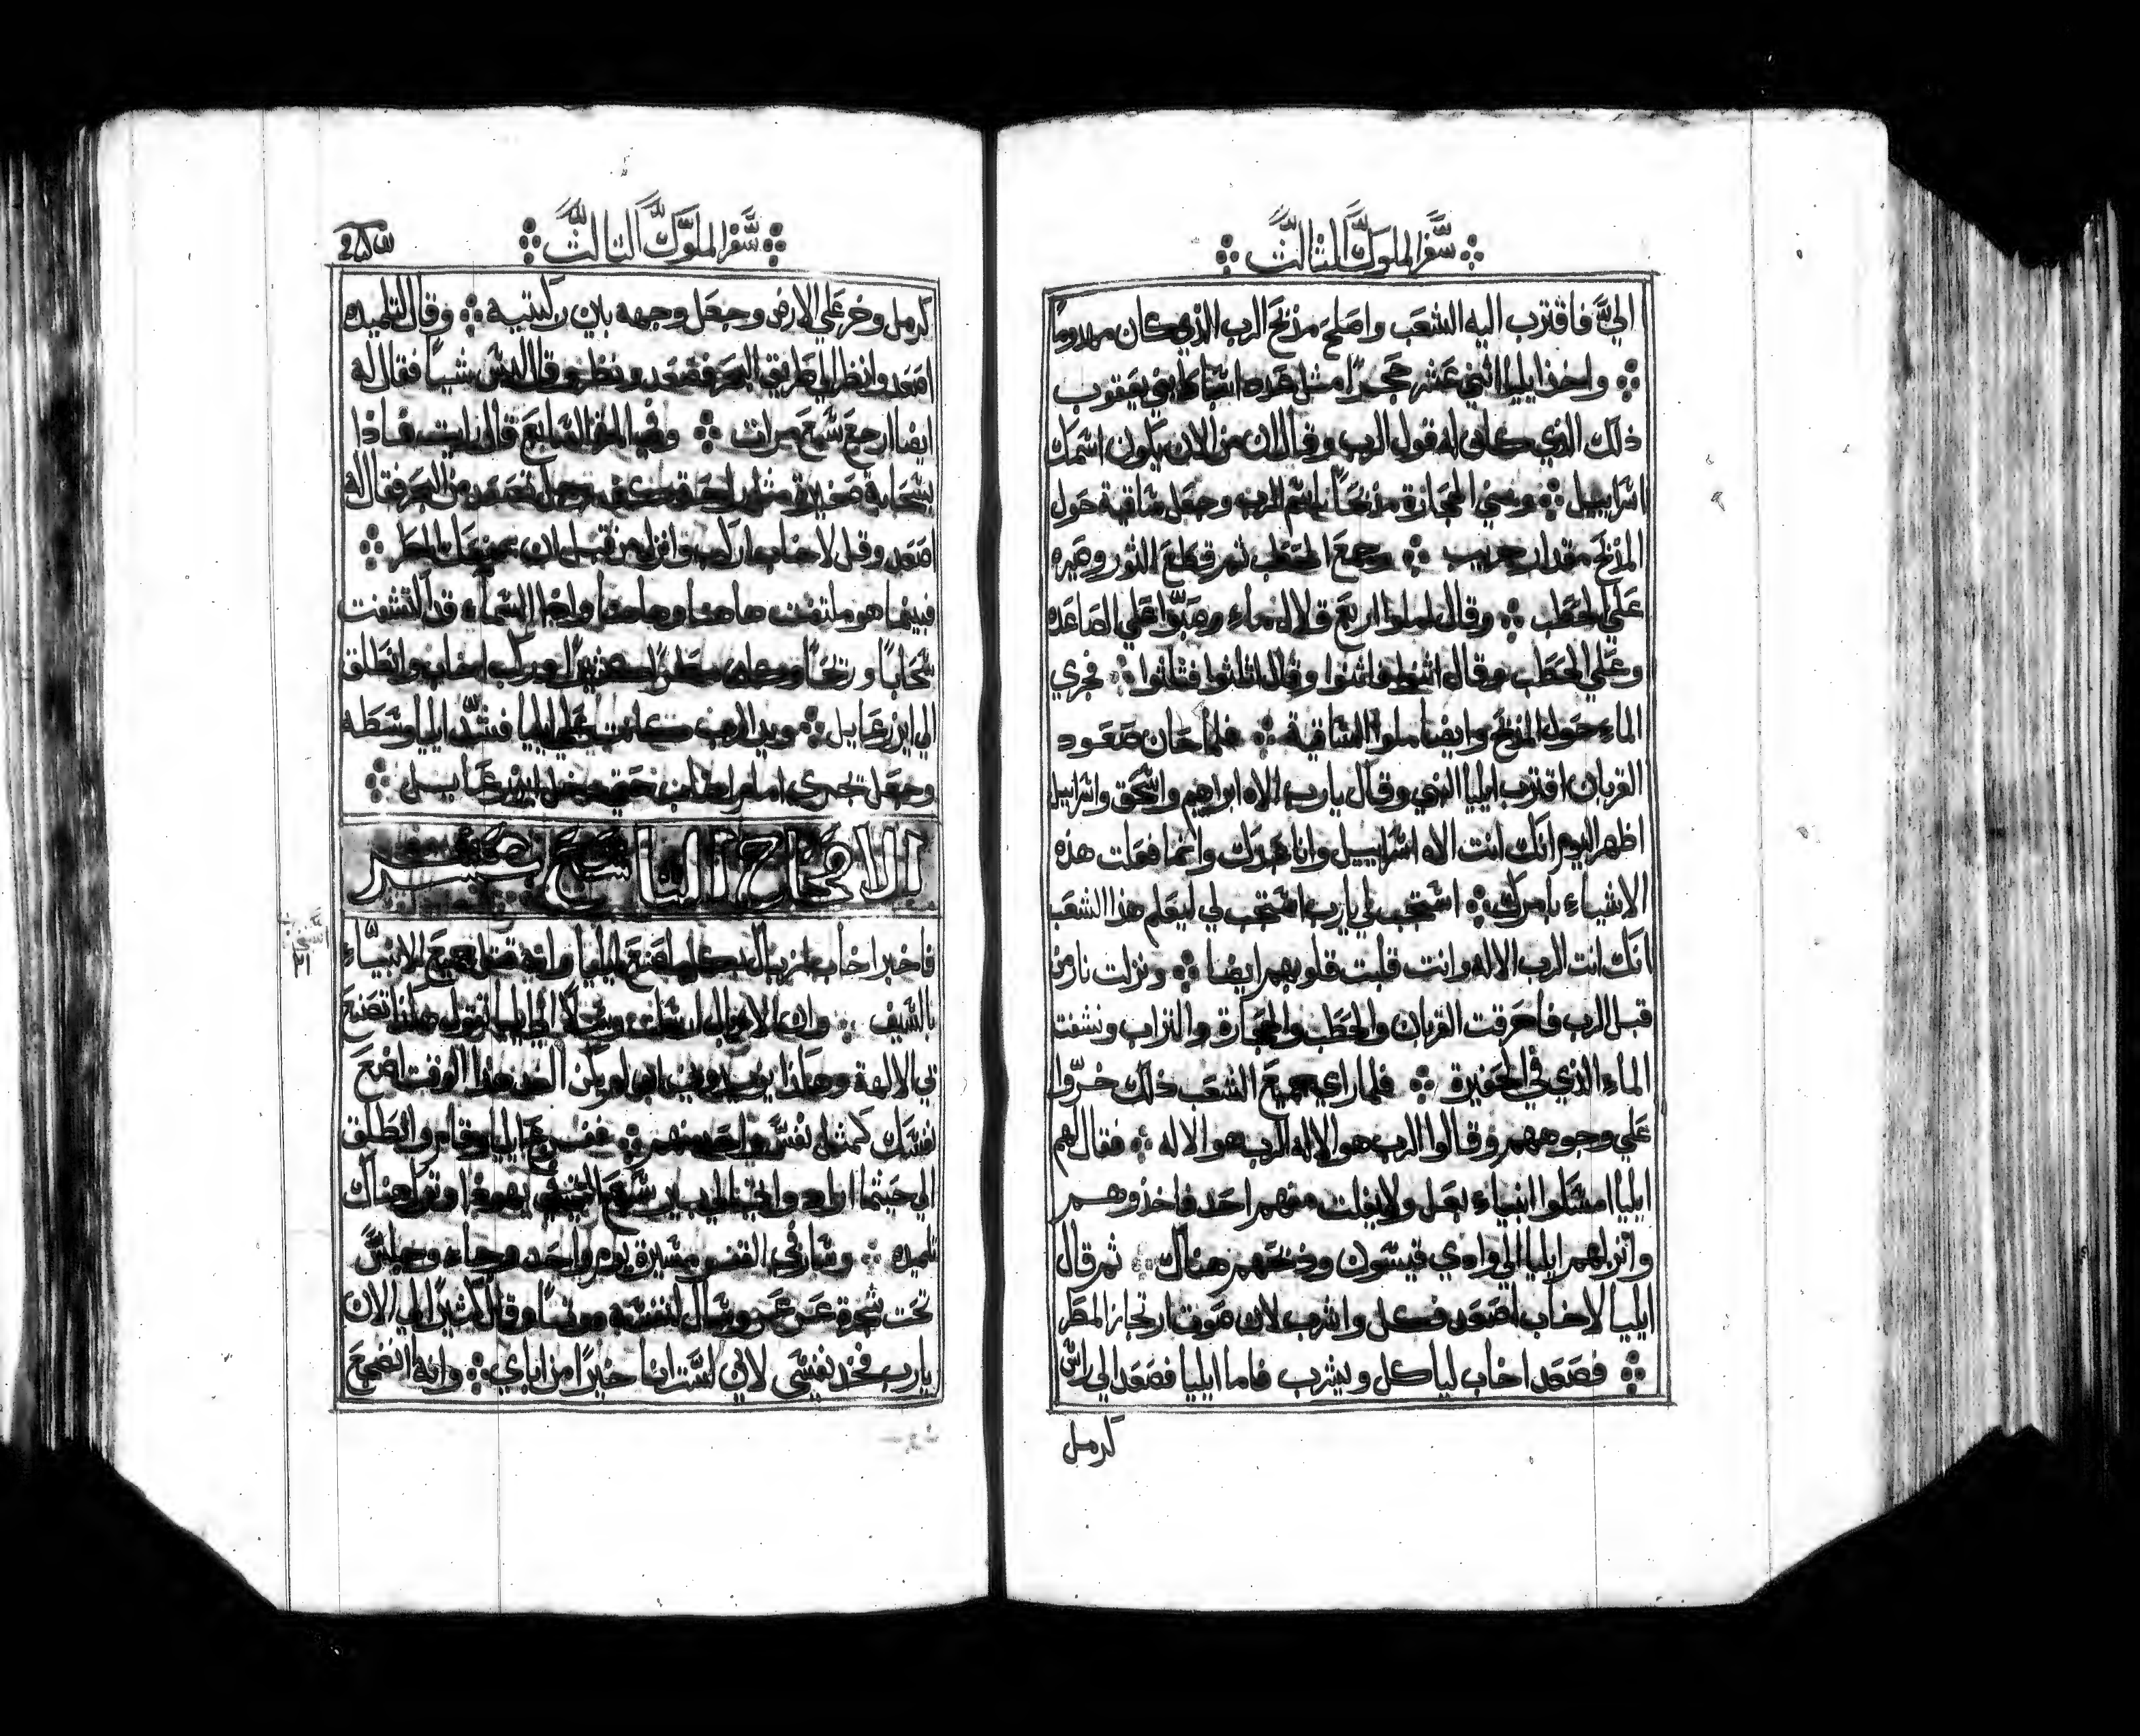 سفر الملوك الثالث
الىَّ فاقترب اليه الشعب واصلح مذبح الرب الذي كان مهدوماً
واخذ ايليا اثني عشر حجراً مثل عدد اسباط بني يعقوب
ذلك الذي كان له قول الرب وقال ان من الان يكون اسمك
اسراييل وبني الحجارة مذبحاً باسم الرب وجعل ساقية حول
المذبح مقدار حريب وجمع الحطب ثم قطع الثور وصيره
علي الحطب وقال املوا اربع قلال ماء وصبوا علي الصاعده
وعلي الحطب وقال اثنوا فاثنوا وقال اثلثوا فثلثوا فجري
الماء حول المذبح وايضا ملوا الساقية فلما حان صعود
القربان اقترب ايليا النبي وقال يارب الاه ابراهيم واسحق واسراييل
اظهر اليوم انك انت الاه اسراييل وانا عبدك وانما فعلت هذه
الاشياء بامرك استجب لي يارب استجب لي ليعلم هذا الشعب
انك انت الرب الاله وانت قلبت قلوبهم ايضا ونزلت نار من
قبل الرب فاحرقت القربان والحطب والحجارة والتراب ونشفت
الماء الذي في الحفيرة فلما راي جميع الشعب ذلك خرّوا
علي وجوههم وقالوا الرب هو الاله الرب هو الاله فقال لهم
ايليا امسكوا انبياء بعل ولا يفلت منهم احد فاخذوهم
وانزلهم ايليا الي وادي قيسون وذبحهم هناك ثم قال
ايليا لاخاب اصعد فكل واشرب لان صوت ارتجاز المطر
فصعد اخاب لياكل ويشرب فاما ايليا فصعد الي راس
كرمل
سفر الملوك الثالث
كرمل وخر علي الارض وجعل وجهه بين ركبتيه وقال لتلميده
اصعد وانظر الي طريق البحر فصعد ونظر وقال ليس شيا فقال له
ايضا ارجع سبع مرات وفي المرة السابع قال رايت فاذا
بسحابة صغيرة مثل راحة كف رجل تصعد من البحر فقال له
اصعد وقل لاخاب اركب وانزل من قبل ان يمنعك المطر
فبينما هو ملتفت هاهنا وهاهنا واذا السماء قد التشفت
سحابا وريحاً وكان مطراً كثيراً وركب اخاب وانطلق
الي ايزرعايل ويد الرب كانت علي ايليا فشد ايليا وسطه
وجعل يجري امام اخاب حتي دخل ايزرعايل
الاصحاح التاسع عشر
فاخبر اخاب ايزبال كلما صنع ايليا وانه قتل جميع الانبياء
بالسيف وان ايزبال ارسلت رسولاً الي ايليا تقول هكذا تصنع
بي الالهة وهكذا يزيدوني ان لم يكن الغد هذا الوقت اضع
نفسك كمثل نفس واحد منهم ففزع ايليا وقام وانطلق
الي حيثما اراد واتي الي بير سبع التي يهودا وترك هناك
تلميده وسار في القفر مسيرة يوم واحد وجاء وجلس
تحت شجرة عرعر وسال لنفسه موتا وقال كثيراً الي الان
يارب فخذ نفسي لاني لست انا خيراً من اباي وانه اضجع